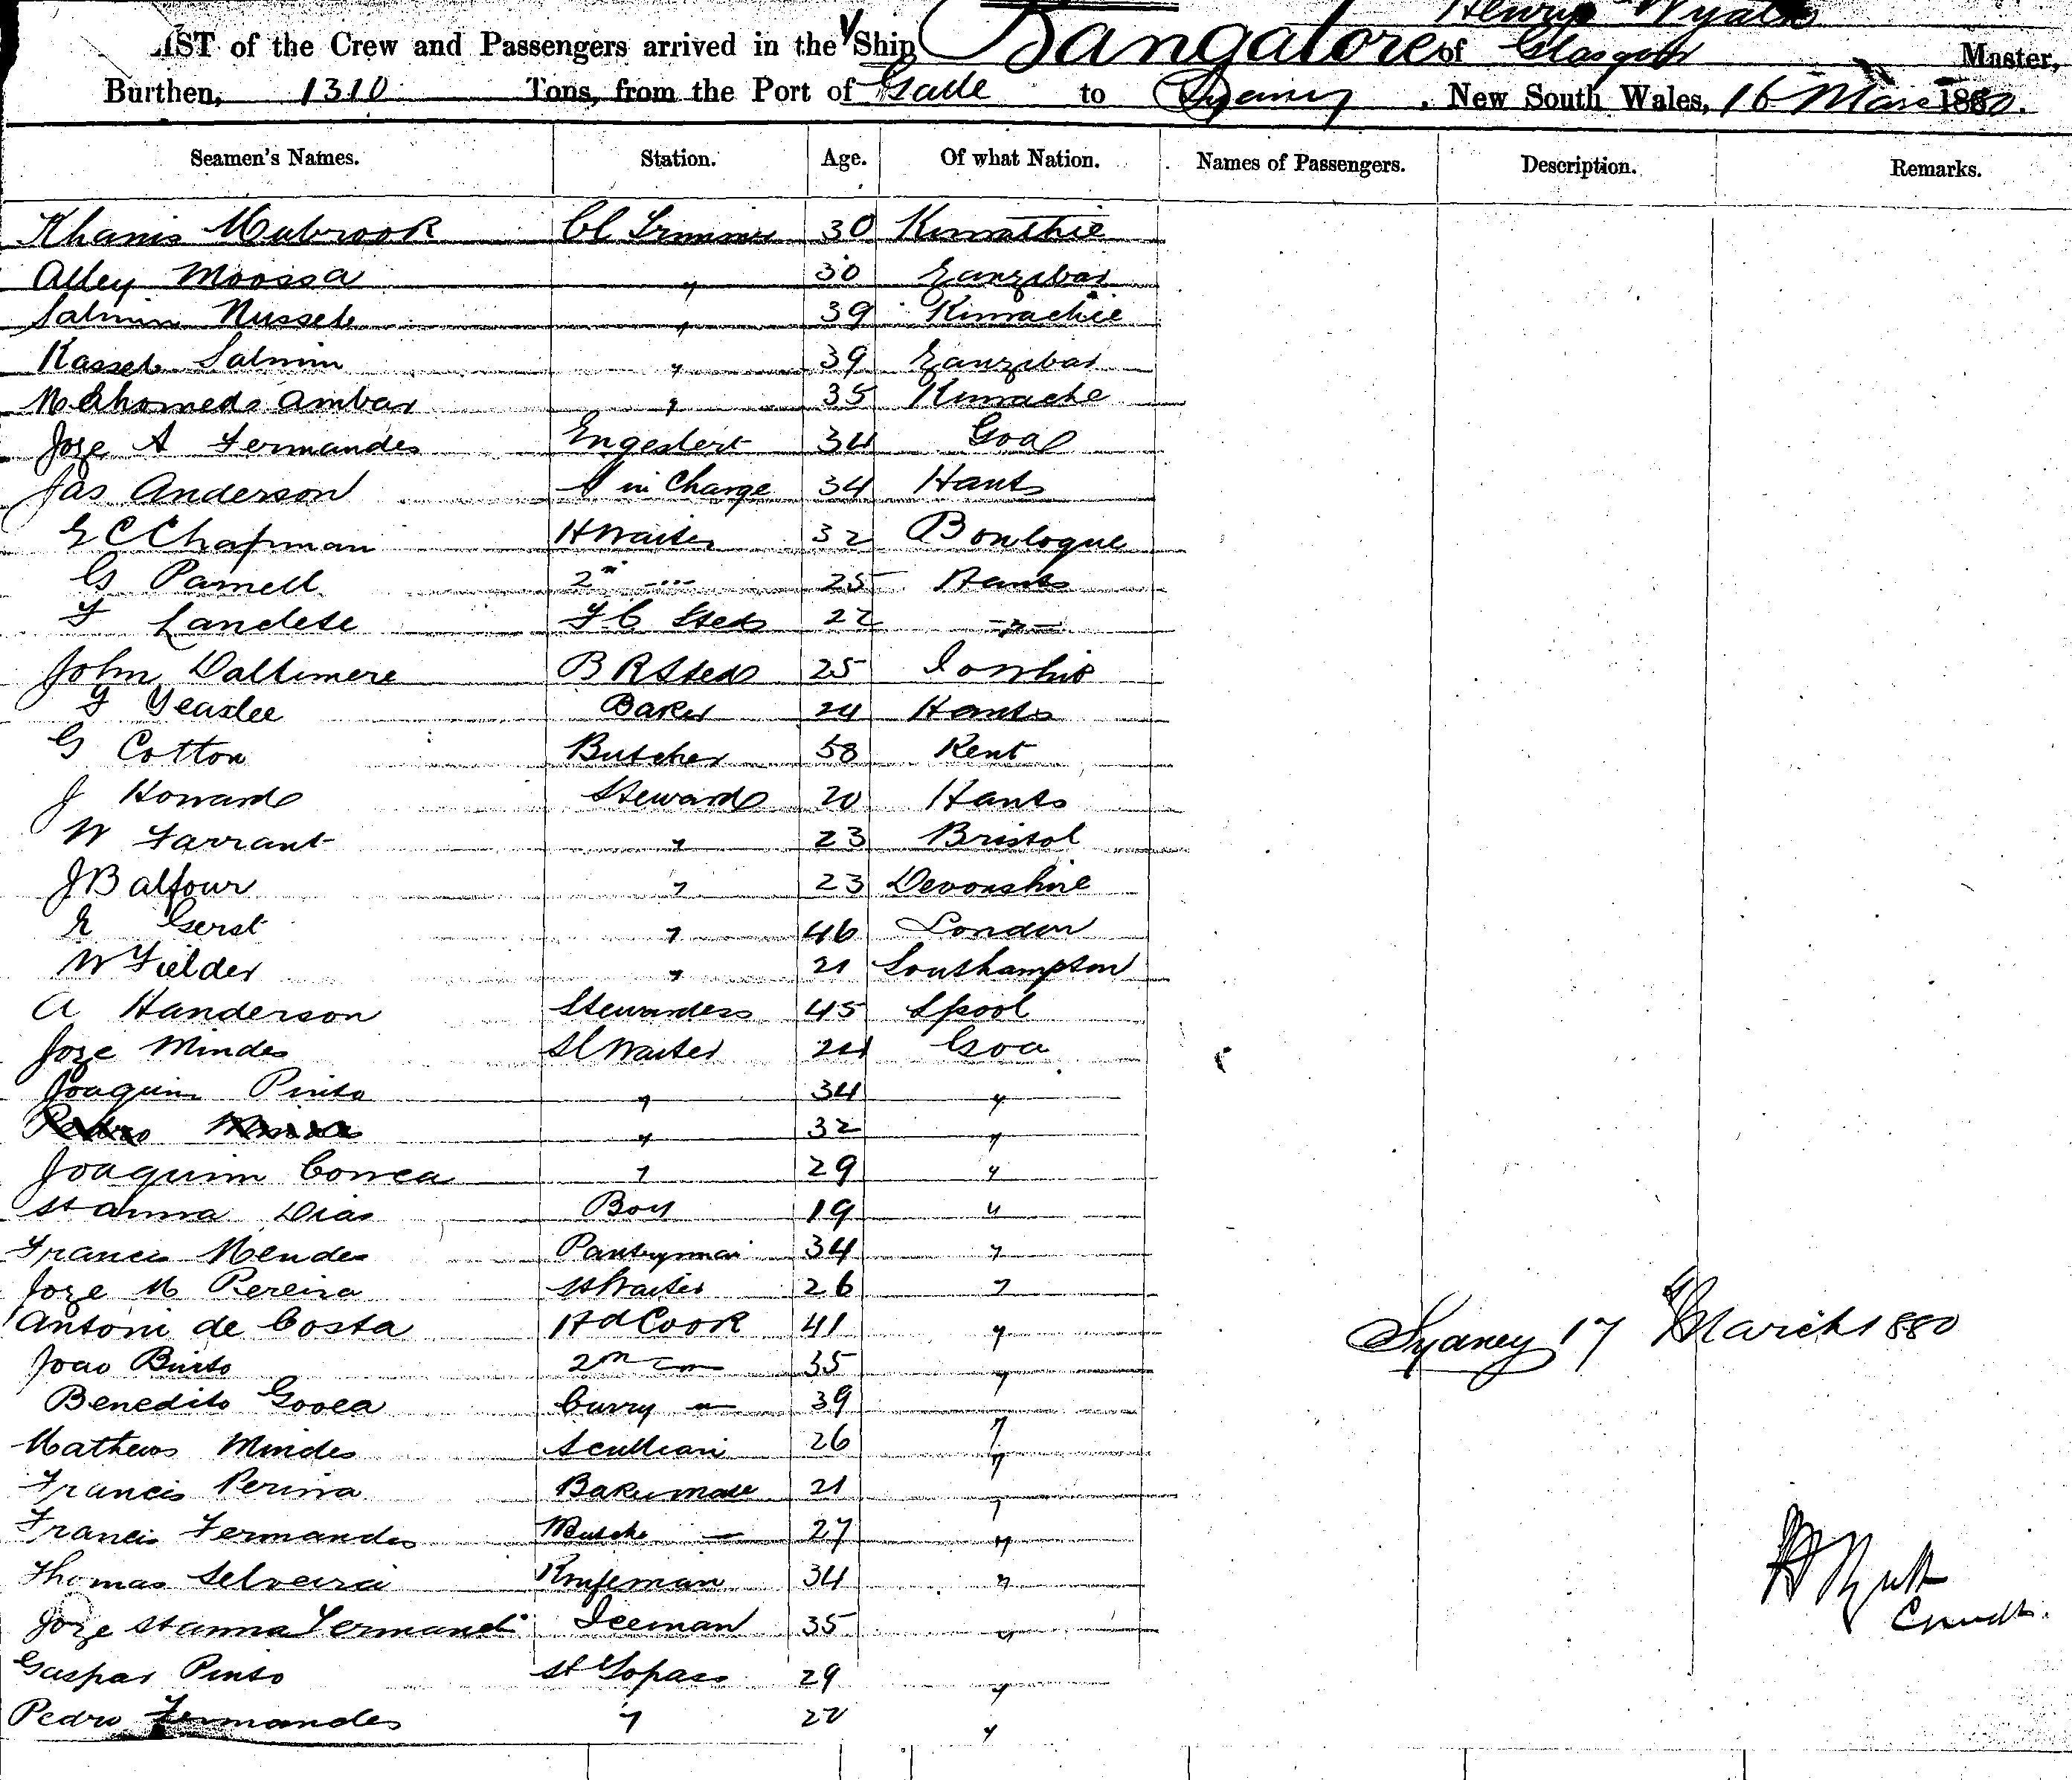 Henry Wyatt
LIST of the Crew and Passengers arrived in the Ship Bangalore of Glasgow Master,
Burthen, 1310 Tons, from the Port of Galle to Sydney, New South Wales, 16 Mar 1880.
Seamen's Names. Station. Age. Of what Nation. Names of Passengers. Description. Remarks.
Khamis Mubrook Cl Trimmer 30
Alley Moossa " 30 Zanzibar
Salmin Nusseb " 39
Kasseb Salmin " 39 Zanzibar
Mahomed Ambar " 35
Joze A Fernandes 34 Goa
Jas Anderson in Charge 34 Hants
E C Chapman H Waiter 32 Boulogue
G Parnell 2nd 25 Hants
F 22 -"-
John Daltimere B R Sted 25
Baker 24 Hants
G Cotton Butcher 58 Kent
J Howard Steward 20 Hants
W Farrant " 23 Bristol
J Balfour " 23 Devonshire
E Gerst " 46 London
W Fielder " 21 Southampton
A Handerson Stewardess 45 Lpool
Joze Mindes Sl Waiter 24 Goa
Joaquim Pinto " 34 "
" 32 "
Joaquim Correa " 29 "
St Anna Dias Boy 19 "
Francis Mendes Pantryman 34 "
Joze M Pereira Waiter 26 "
Antoni de Costa Hd Cook 41 "
Joao 2nd 35 "
Benedito Curry 39 "
Mathews Mindes Scullian 26 "
Francis Perira Bakermate 21 "
Francis Fernandes 27 "
Thomas Selveira Knifeman 34 "
Joze St Anna Fernand Iceman 35 "
Gaspar Pinto St Topass 29 "
Pedro Fernandes " 22 "
Sydney 17 March 1880